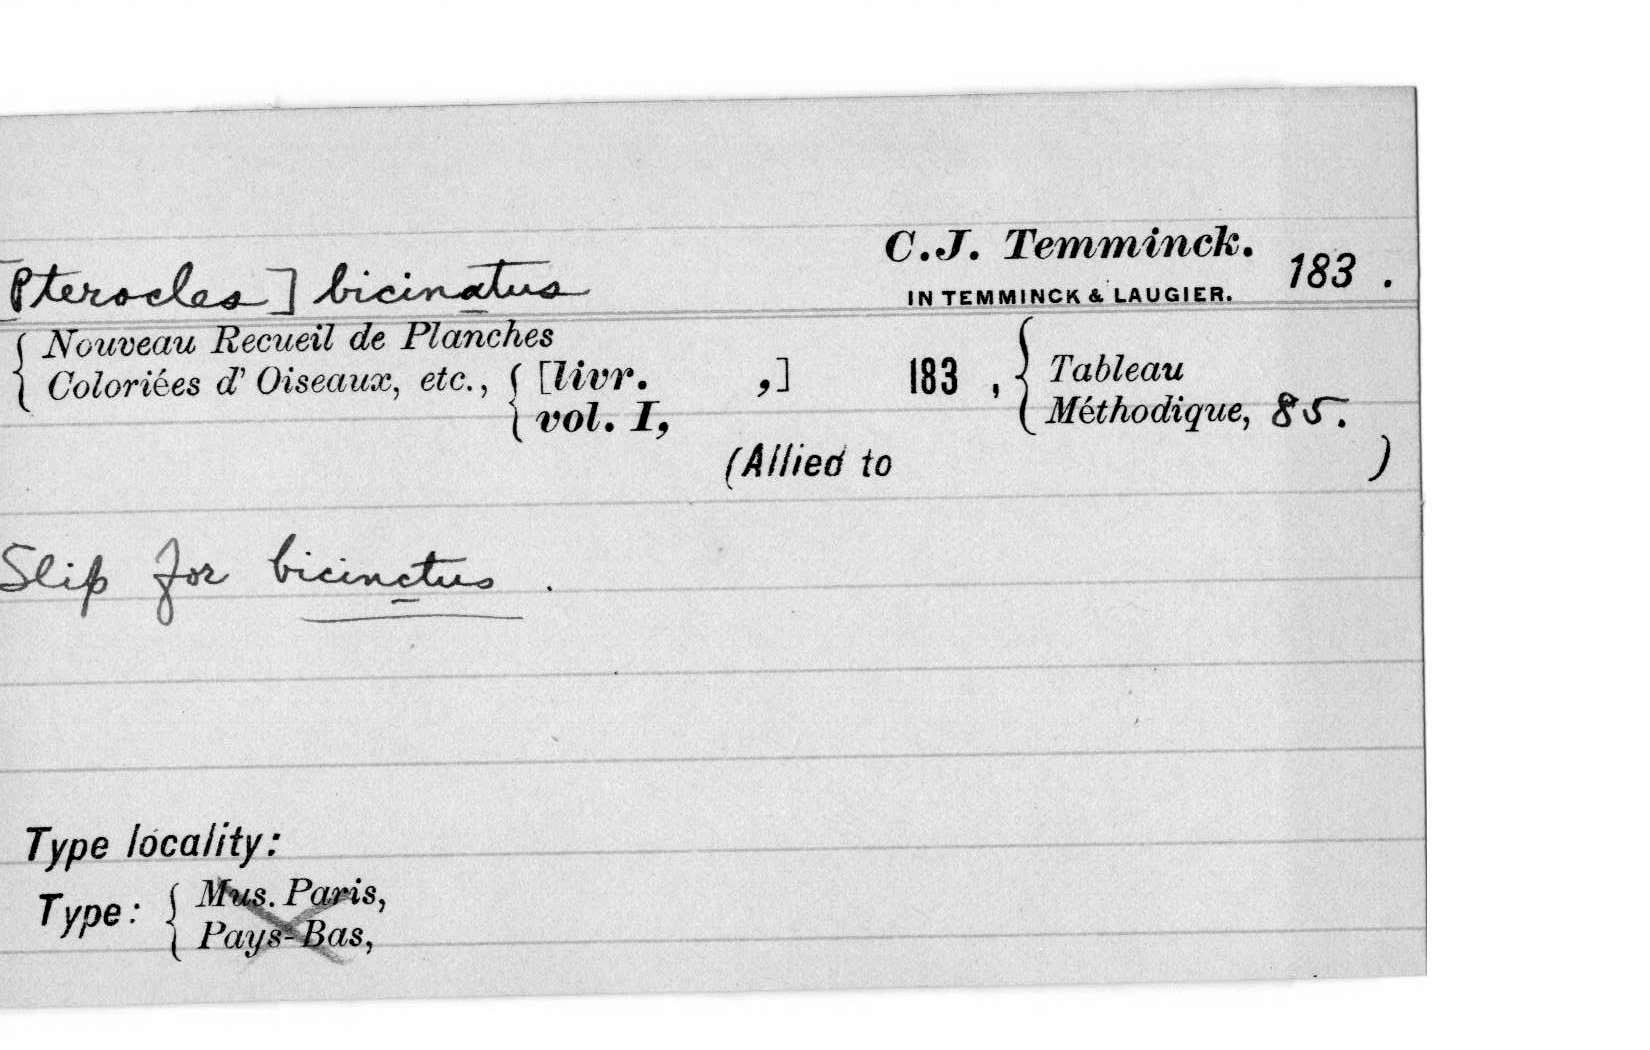 [Pterocles] bicinatus
C.J. Temminck.
IN TEMMINCK & LAUGIER.
183 .
Nouveau Recueil de Planches
Coloriées d' Oiseaux, etc.,
[livr. ,]
vol. I,
183 ,
Tableau
Méthodique, 85.
(Allied to )
Slip for bicinctus .
Type locality:
Type: Mus. Paris,
Pays-Bas,